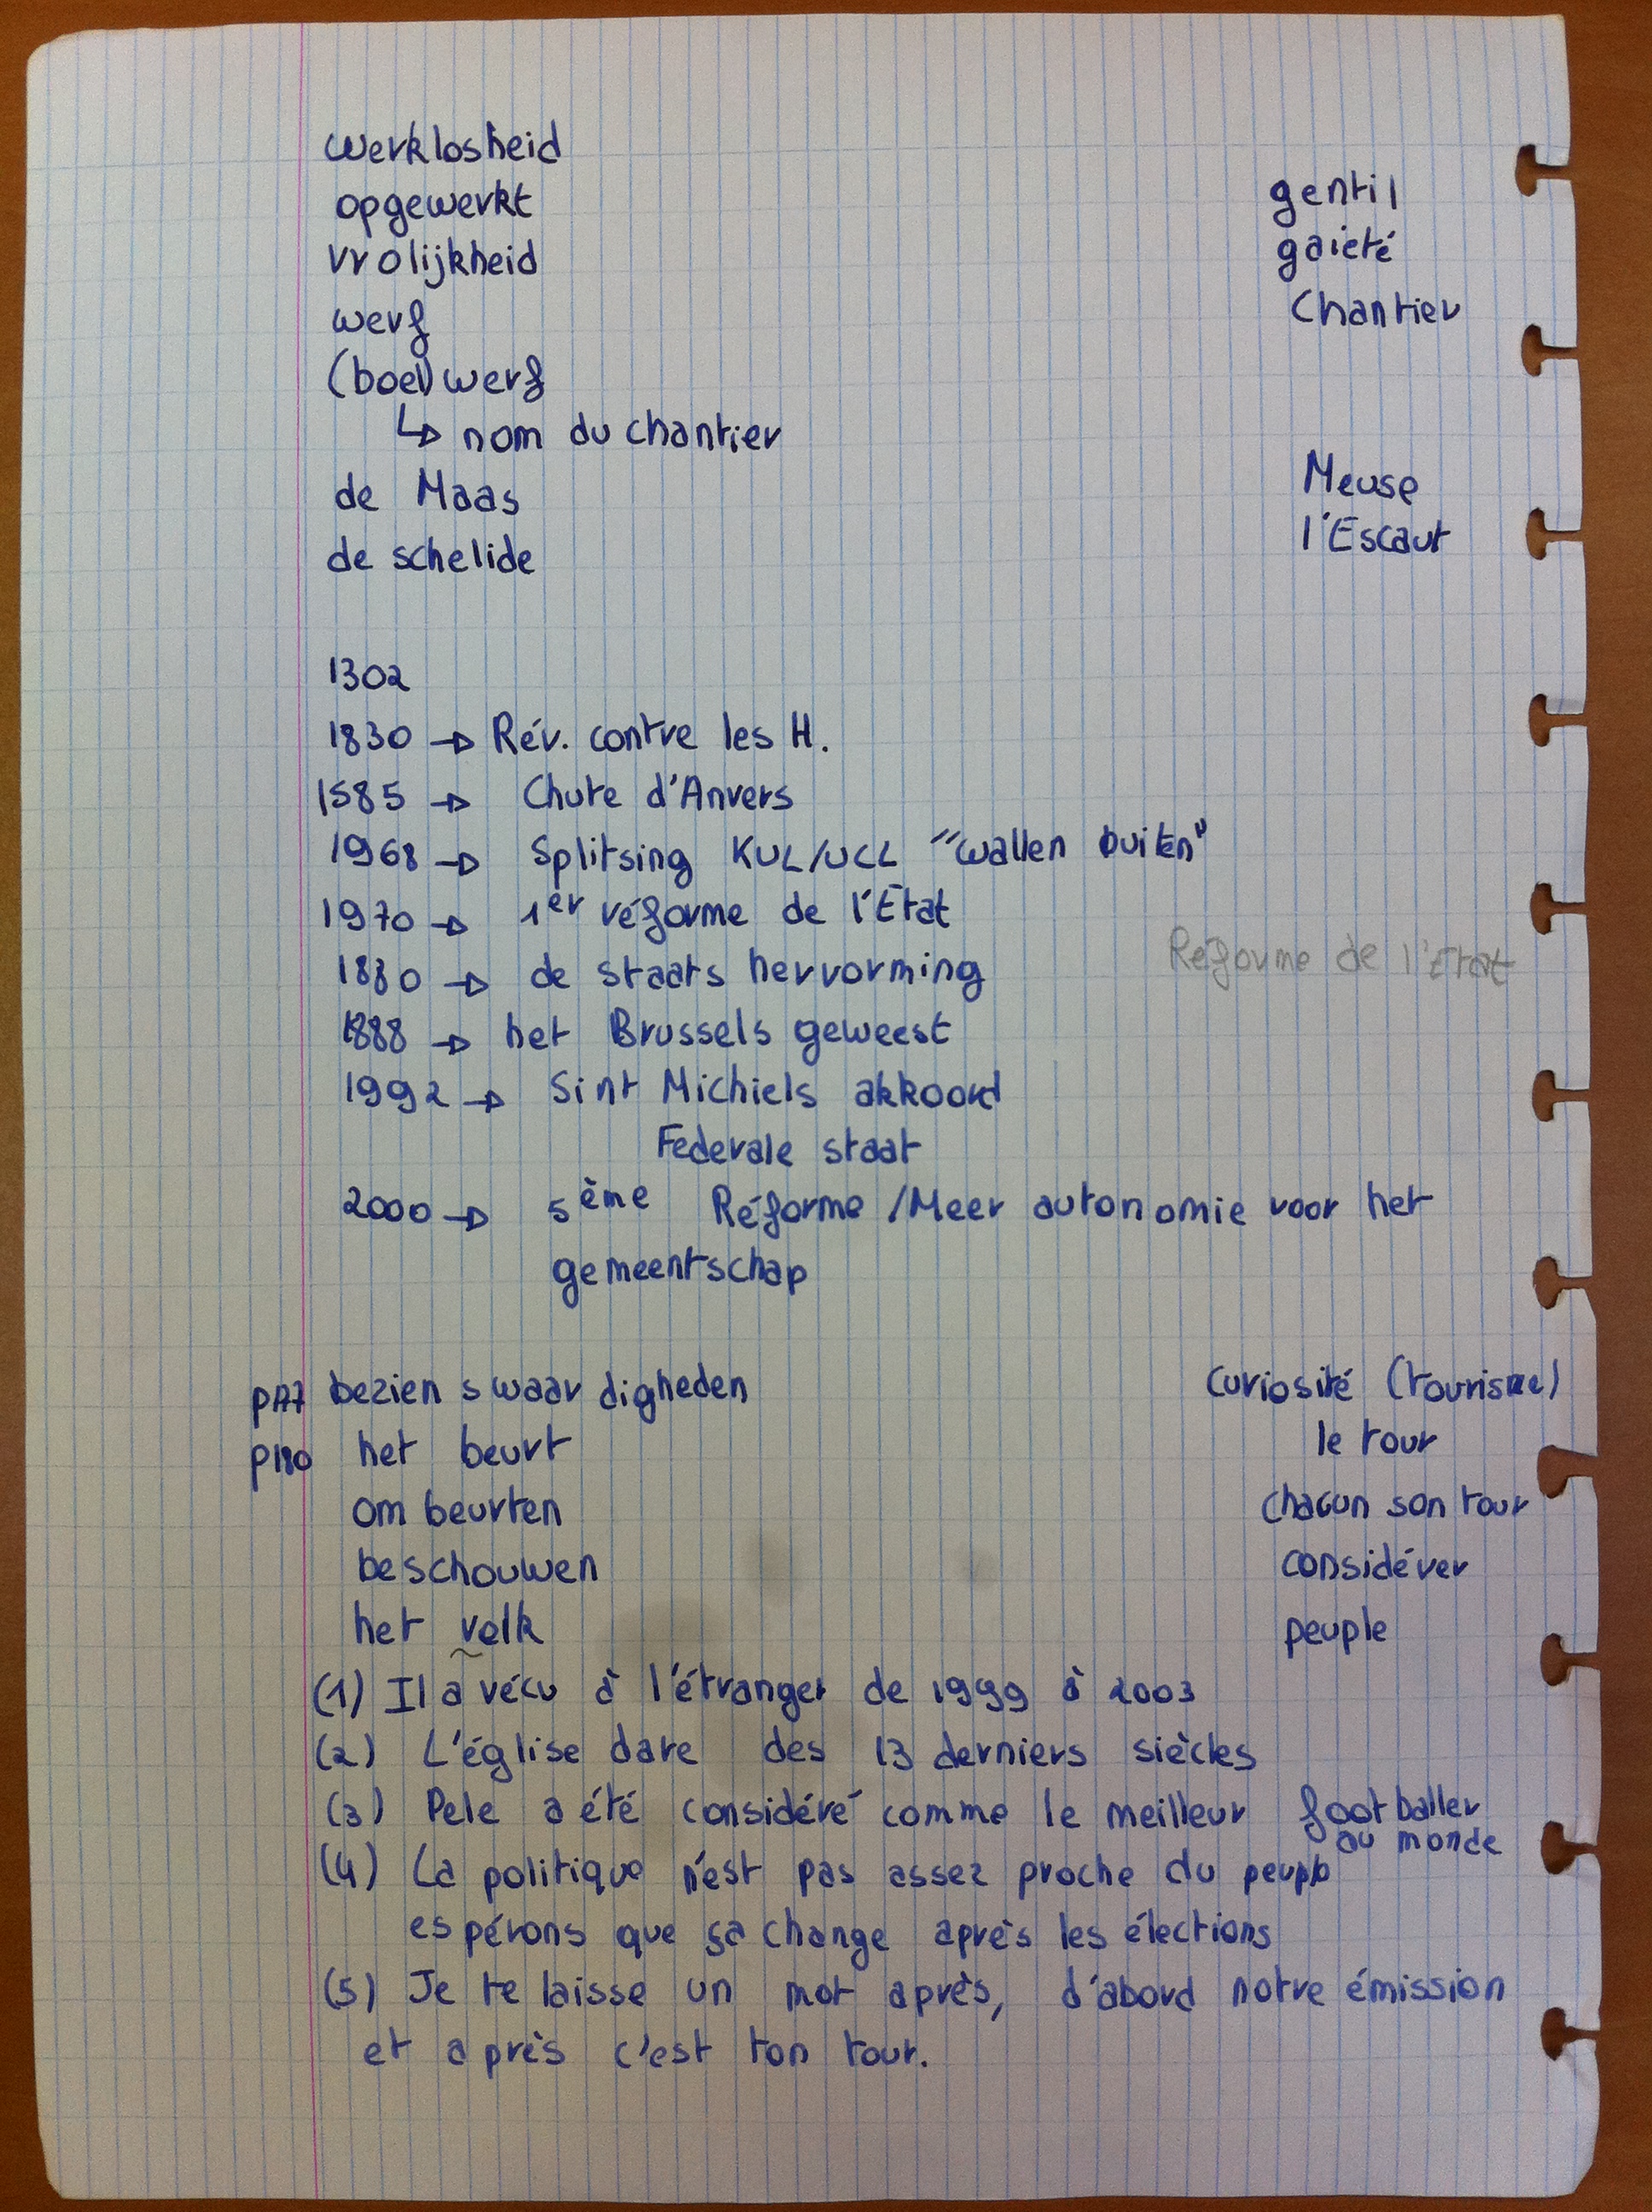 werklosheid
opgewerkt gentil
vrolijkheid gaieté
werf Chantier
(boel) werf
↳ nom du chantier
de Maas Meuse
de schelide l'Escaut
1302
1830 → Rév. contre les H.
1585 → Chute d'Anvers
1968 → Splitsing KUL/UCL "wallen buiten"
1970 → 1er réforme de l'Etat
1880 → de staats hervorming Reforme de l'Etat
1888 → het Brussels geweest
1992 → Sint Michiels akkoord
Federale staat
2000 → 5ème Réforme / Meer autonomie voor het
gemeentschap
beziens waar digheden curiosité (tourisme)
p180 het beurt le tour
om beurten chacun son tour
beschouwen considérer
het volk peuple
(1) Il a vécu à l'étranger de 1999 à 2003
(2) L'église date des 13 derniers siècles
(3) Pele a été considéré comme le meilleur footballer
au monde
(4) La politique n'est pas assez proche du peuple
espérons que ça change après les élections
(5) Je te laisse un mot après, d'abord notre émission
et après c'est ton tour.